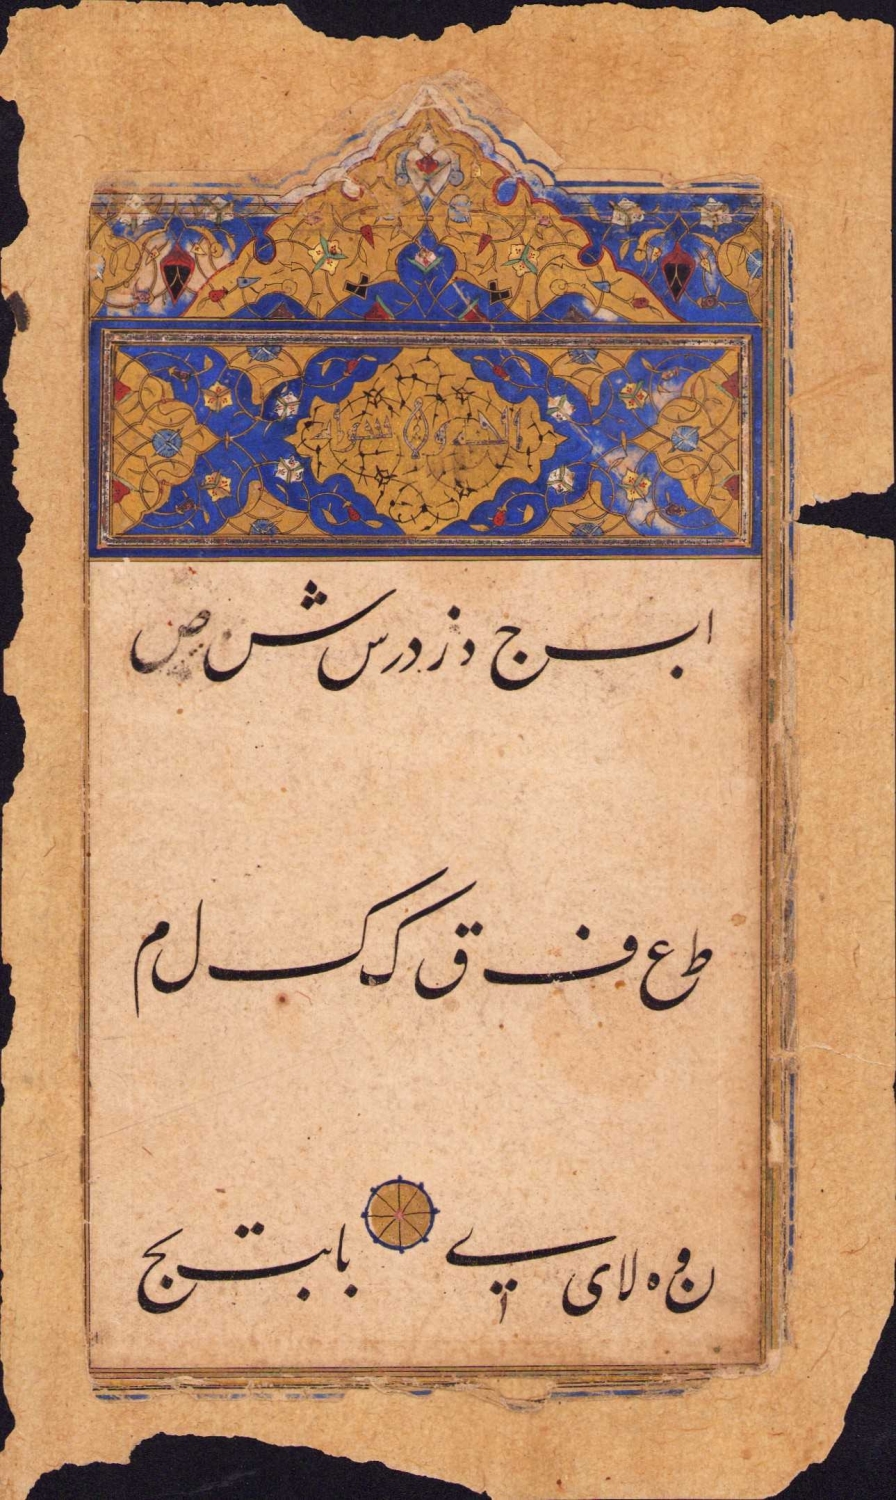 ا ب ج د ز د ر س ش ص
ط ع ف ق ک ک ل م
ن و ه لا ی ے
با بب بت بج